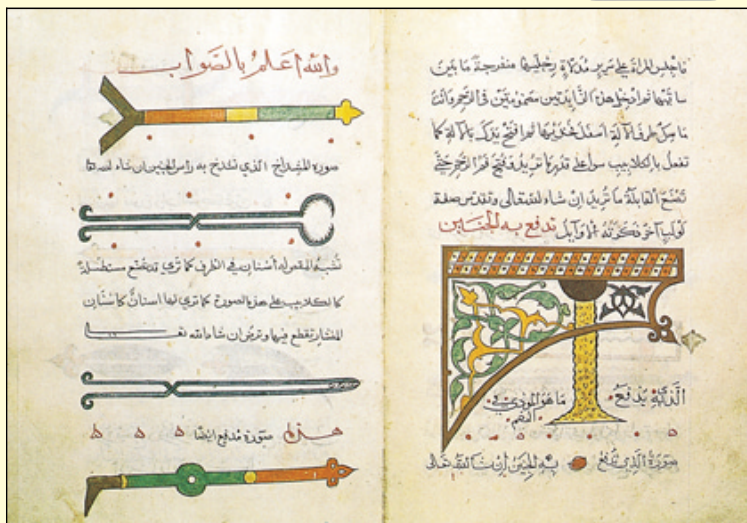 فاجلس المراة على سرير مدلاة رجليها منفرجة ما بين
ساقيها ثم ادخل هذه الزايدتين مضمومتين في الرحم وانت
ماسك طرف الآلة اسفل فخذيها ثم افتح يدك بالآلة كما
تفعل بالكلاليب سوا على قدر ما تريد فتح فم الرحم حتى
تصنع القابلة ما تريد ان شاء الله تعالى وتقدس صفة
لولب آخر ذكرته الاوايل تدفع به الجنين
الذي يدفع ما هو المؤدي في
الفم
صورة الذي تدفع به الجنين ان شا الله تعالى
والله اعلم بالصواب
صورة المشداخ الذي تشدخ به راس الجنين ان شاء الله
تشبه المقص له اسنان في الطرف كما ترى قد تصنع مستطيلة
كالكلاليب على هذه الصورة كما ترى لها اسنان كاسنان
المنشار يقطع فيها وترض ان شاء الله تعالى
هذه صورة مدفع ايضا ه ه ه